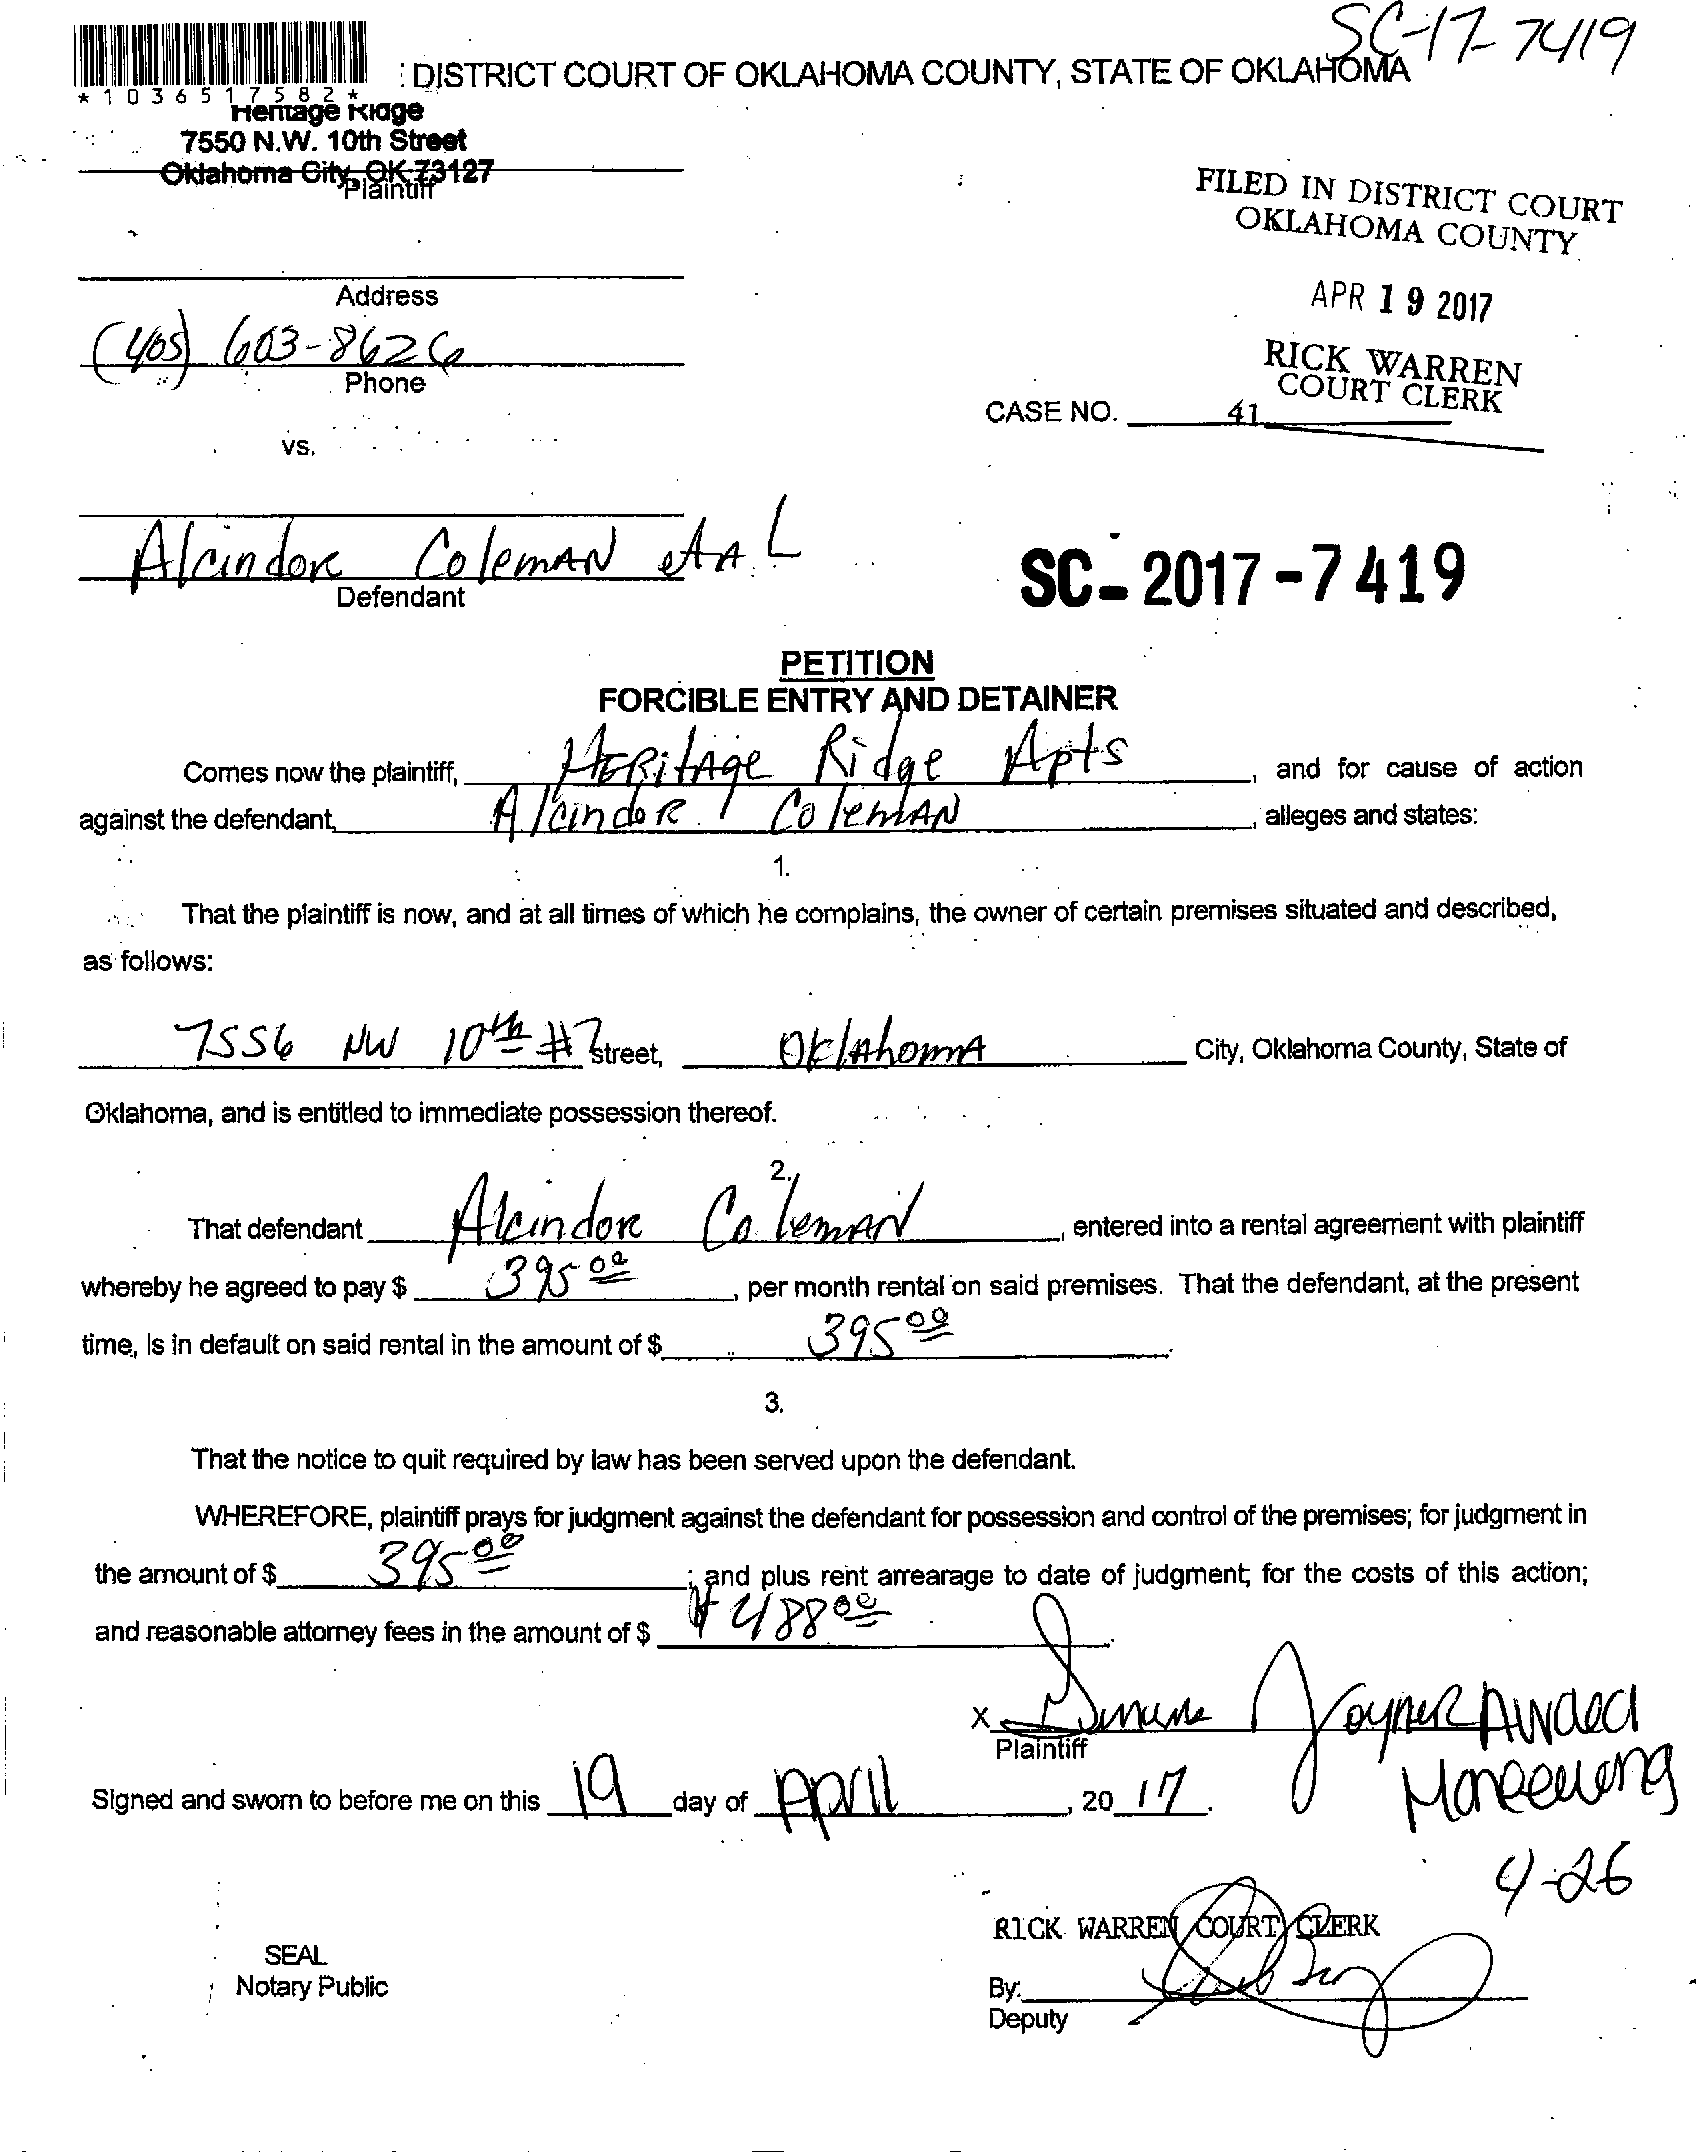 SC-17-7419
: DISTRICT COURT OF OKLAHOMA COUNTY, STATE OF OKLAHOMA
* 1 0 3 6 5 1 7 5 8 2 *
Heritage Ridge
7550 N.W. 10th Street
Oklahoma City, OK 73127
Plaintiff
FILED IN DISTRICT COURT
OKLAHOMA COUNTY
APR 19 2017
RICK WARREN
COURT CLERK
Address
(405) 603-8626
Phone
CASE NO. 41
vs.
Alcindore Coleman et AL
Defendant
SC-2017-7419
PETITION
FORCIBLE ENTRY AND DETAINER
Comes now the plaintiff, Heritage Ridge Apts, and for cause of action
against the defendant, Alcindor Coleman, alleges and states:
1.
That the plaintiff is now, and at all times of which he complains, the owner of certain premises situated and described,
as follows:
7556 NW 10th #7 street, Oklahoma City, Oklahoma County, State of
Oklahoma, and is entitled to immediate possession thereof.
2.
That defendant Alcindore Coleman, entered into a rental agreement with plaintiff
whereby he agreed to pay $ 395.00, per month rental on said premises. That the defendant, at the present
time, is in default on said rental in the amount of $ 395.00.
3.
That the notice to quit required by law has been served upon the defendant.
WHEREFORE, plaintiff prays for judgment against the defendant for possession and control of the premises; for judgment in
the amount of $ 395.00; and plus rent arrearage to date of judgment; for the costs of this action;
and reasonable attorney fees in the amount of $ 488.00.
x Joyner
Plaintiff
Signed and sworn to before me on this 19 day of April, 2017.
4-26
RICK WARREN COURT CLERK
SEAL
Notary Public
By:
Deputy